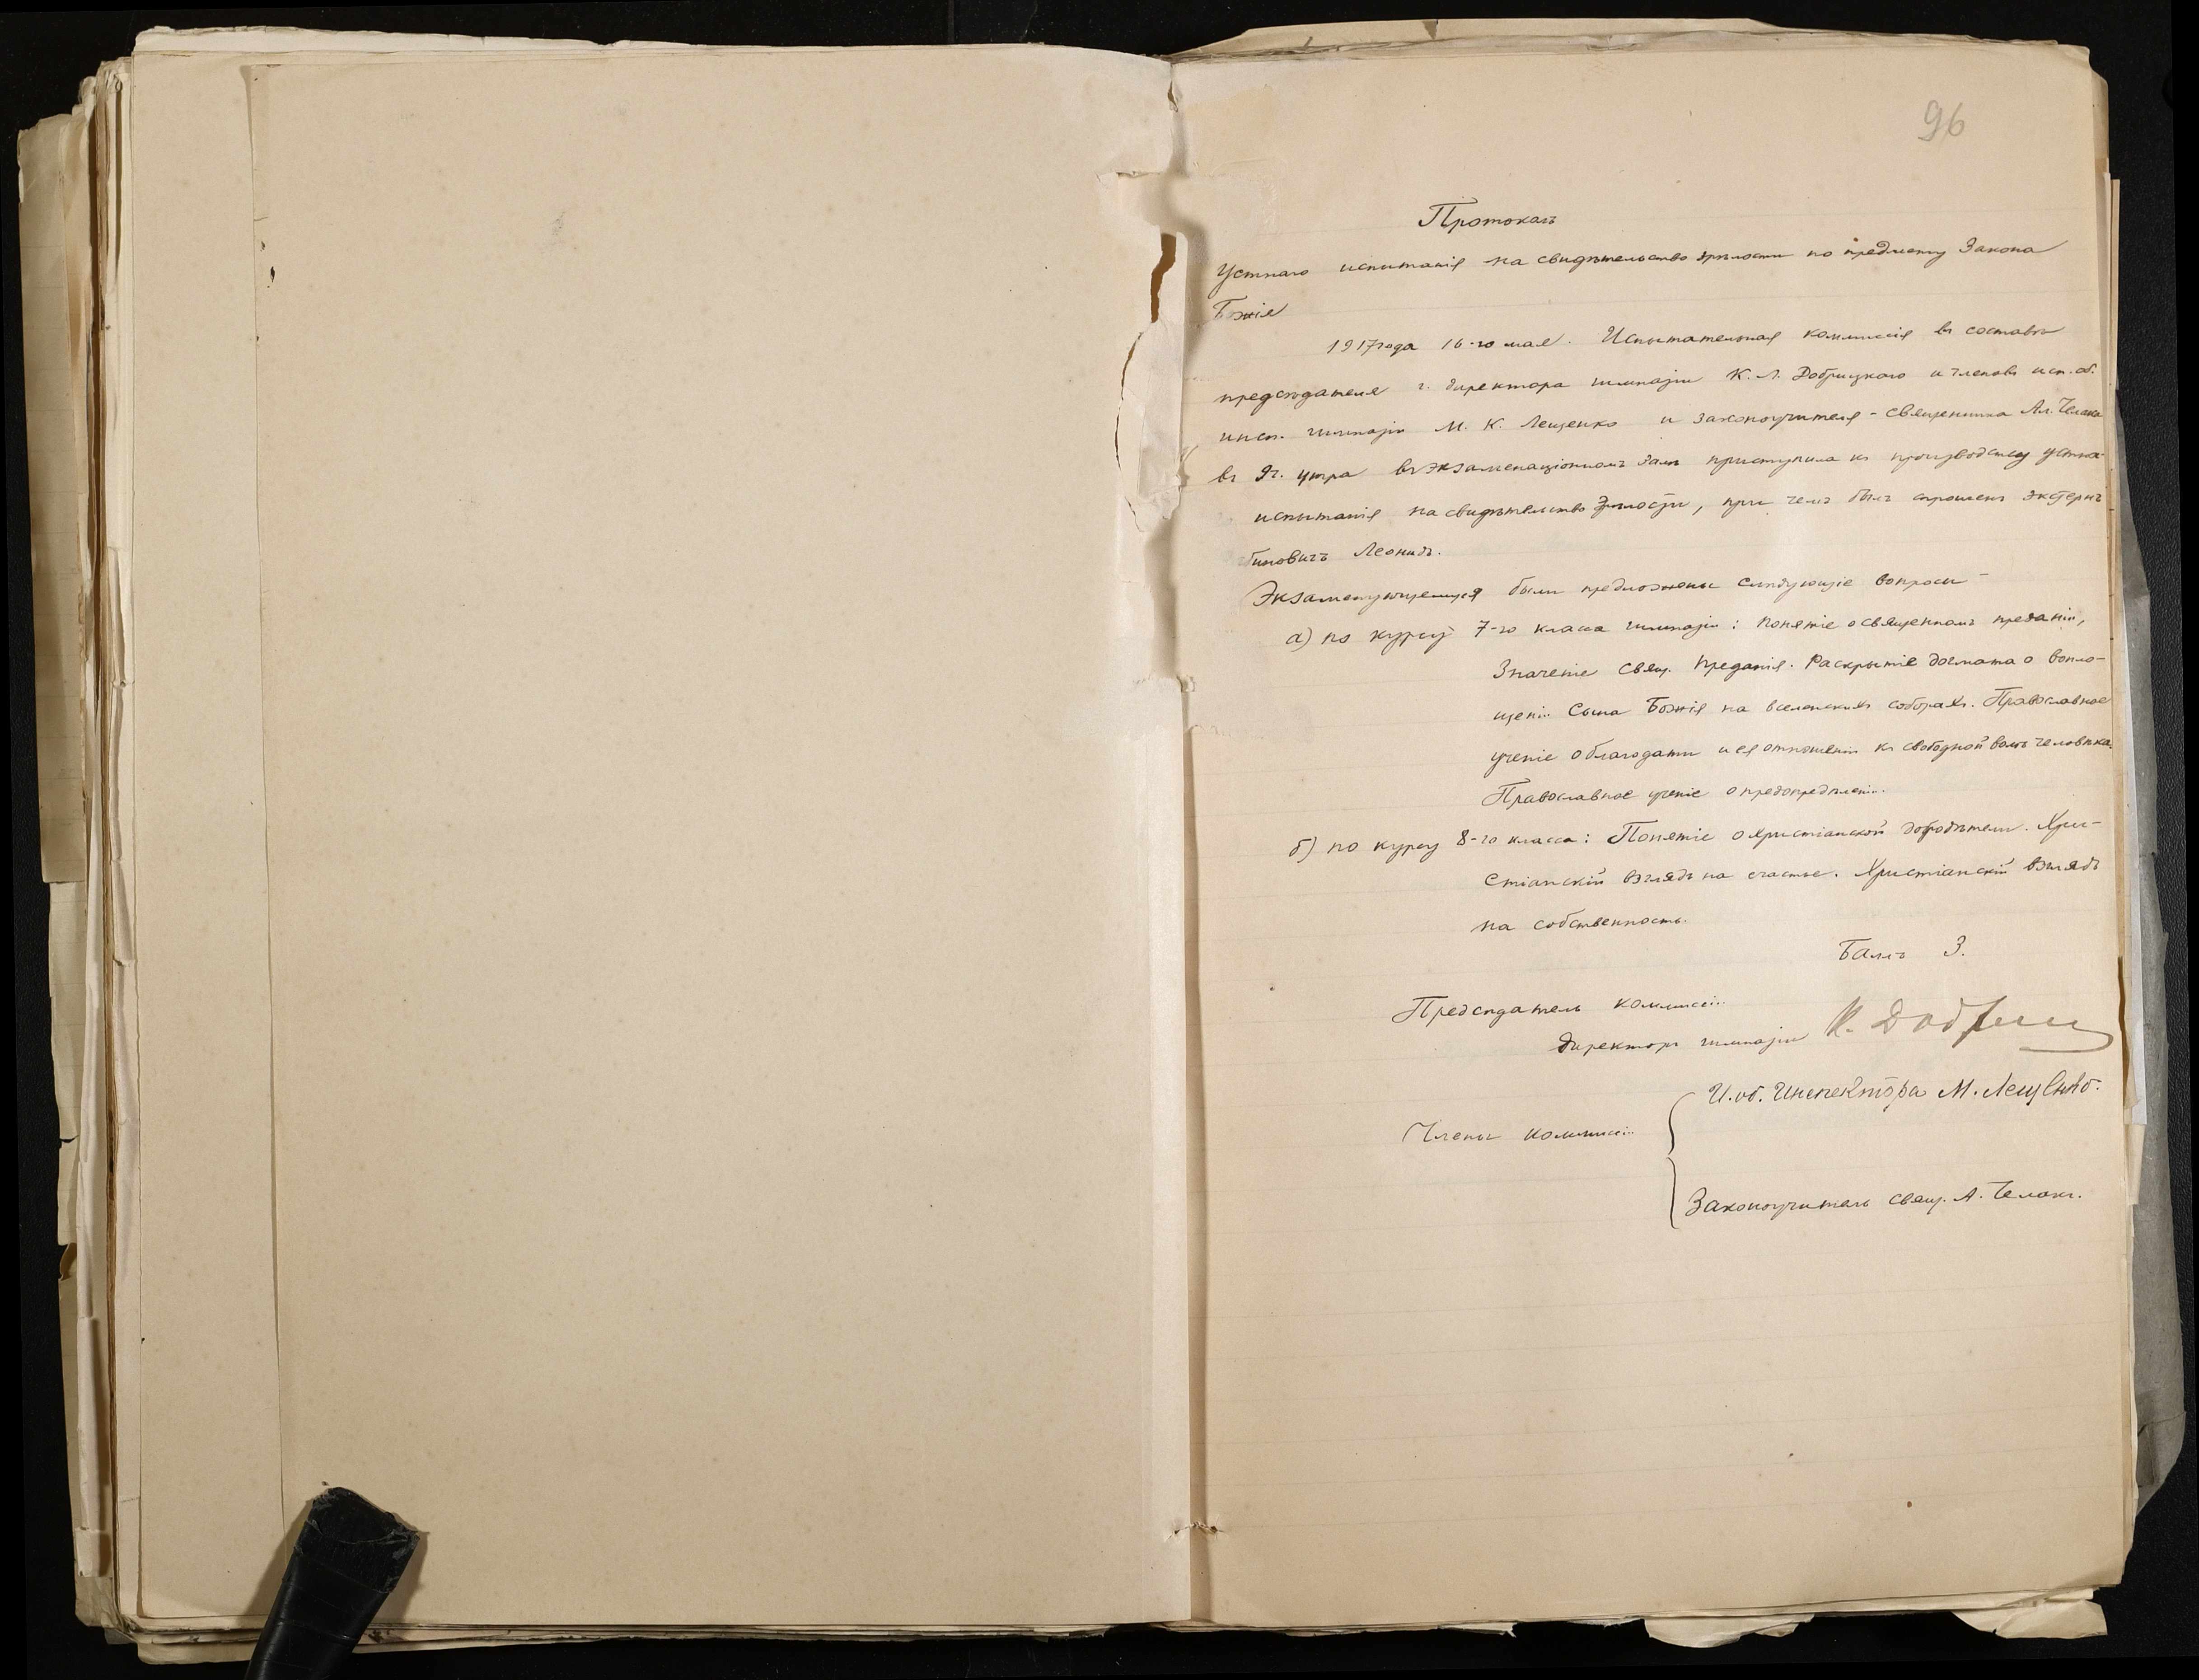 96
Протоколъ
Устнаго испытанія на свидѣтельство зрѣлости по предмету Закона
Божія
1917 года 16-го мая. Испытательная коммиссія въ составѣ
предсѣдателя г. директора гимназіи К. Л. Добрицкаго и членовъ исп. об.
инсп. гимназіи М. К. Лещенко и законоучителя - священника Ал.
въ 9 ч. утра въ экзаменаціонномъ залѣ приступила къ производству
испытанія на свидѣтельство зрѣлости, при чемъ былъ спрошенъ экстернъ
Леонидъ.
Экзаменующемуся были предложены слѣдующіе вопросы
а) по курсу 7-го класса гимназіи: Понятіе о священномъ преданіи,
Значеніе Свящ. Преданія. Раскрытіе догмата о вопло-
щеніи Сына Божія на вселенскихъ соборахъ. Православное
ученіе о благодати и ея отношеніи къ свободной волѣ человѣка.
Православное ученіе о предопредѣленіи.
б) по курсу 8-го класса: Понятіе о христіанской добродѣтели. Хри-
стіанскій взглядъ на счастье. Христіанскій взглядъ
на собственность.
Баллъ 3.
Предсѣдатель коммиссіи
директоръ гимназіи К.
И. об. Инспектора М. Лещенко.
Члены коммиссіи
Законоучитель свящ. А.